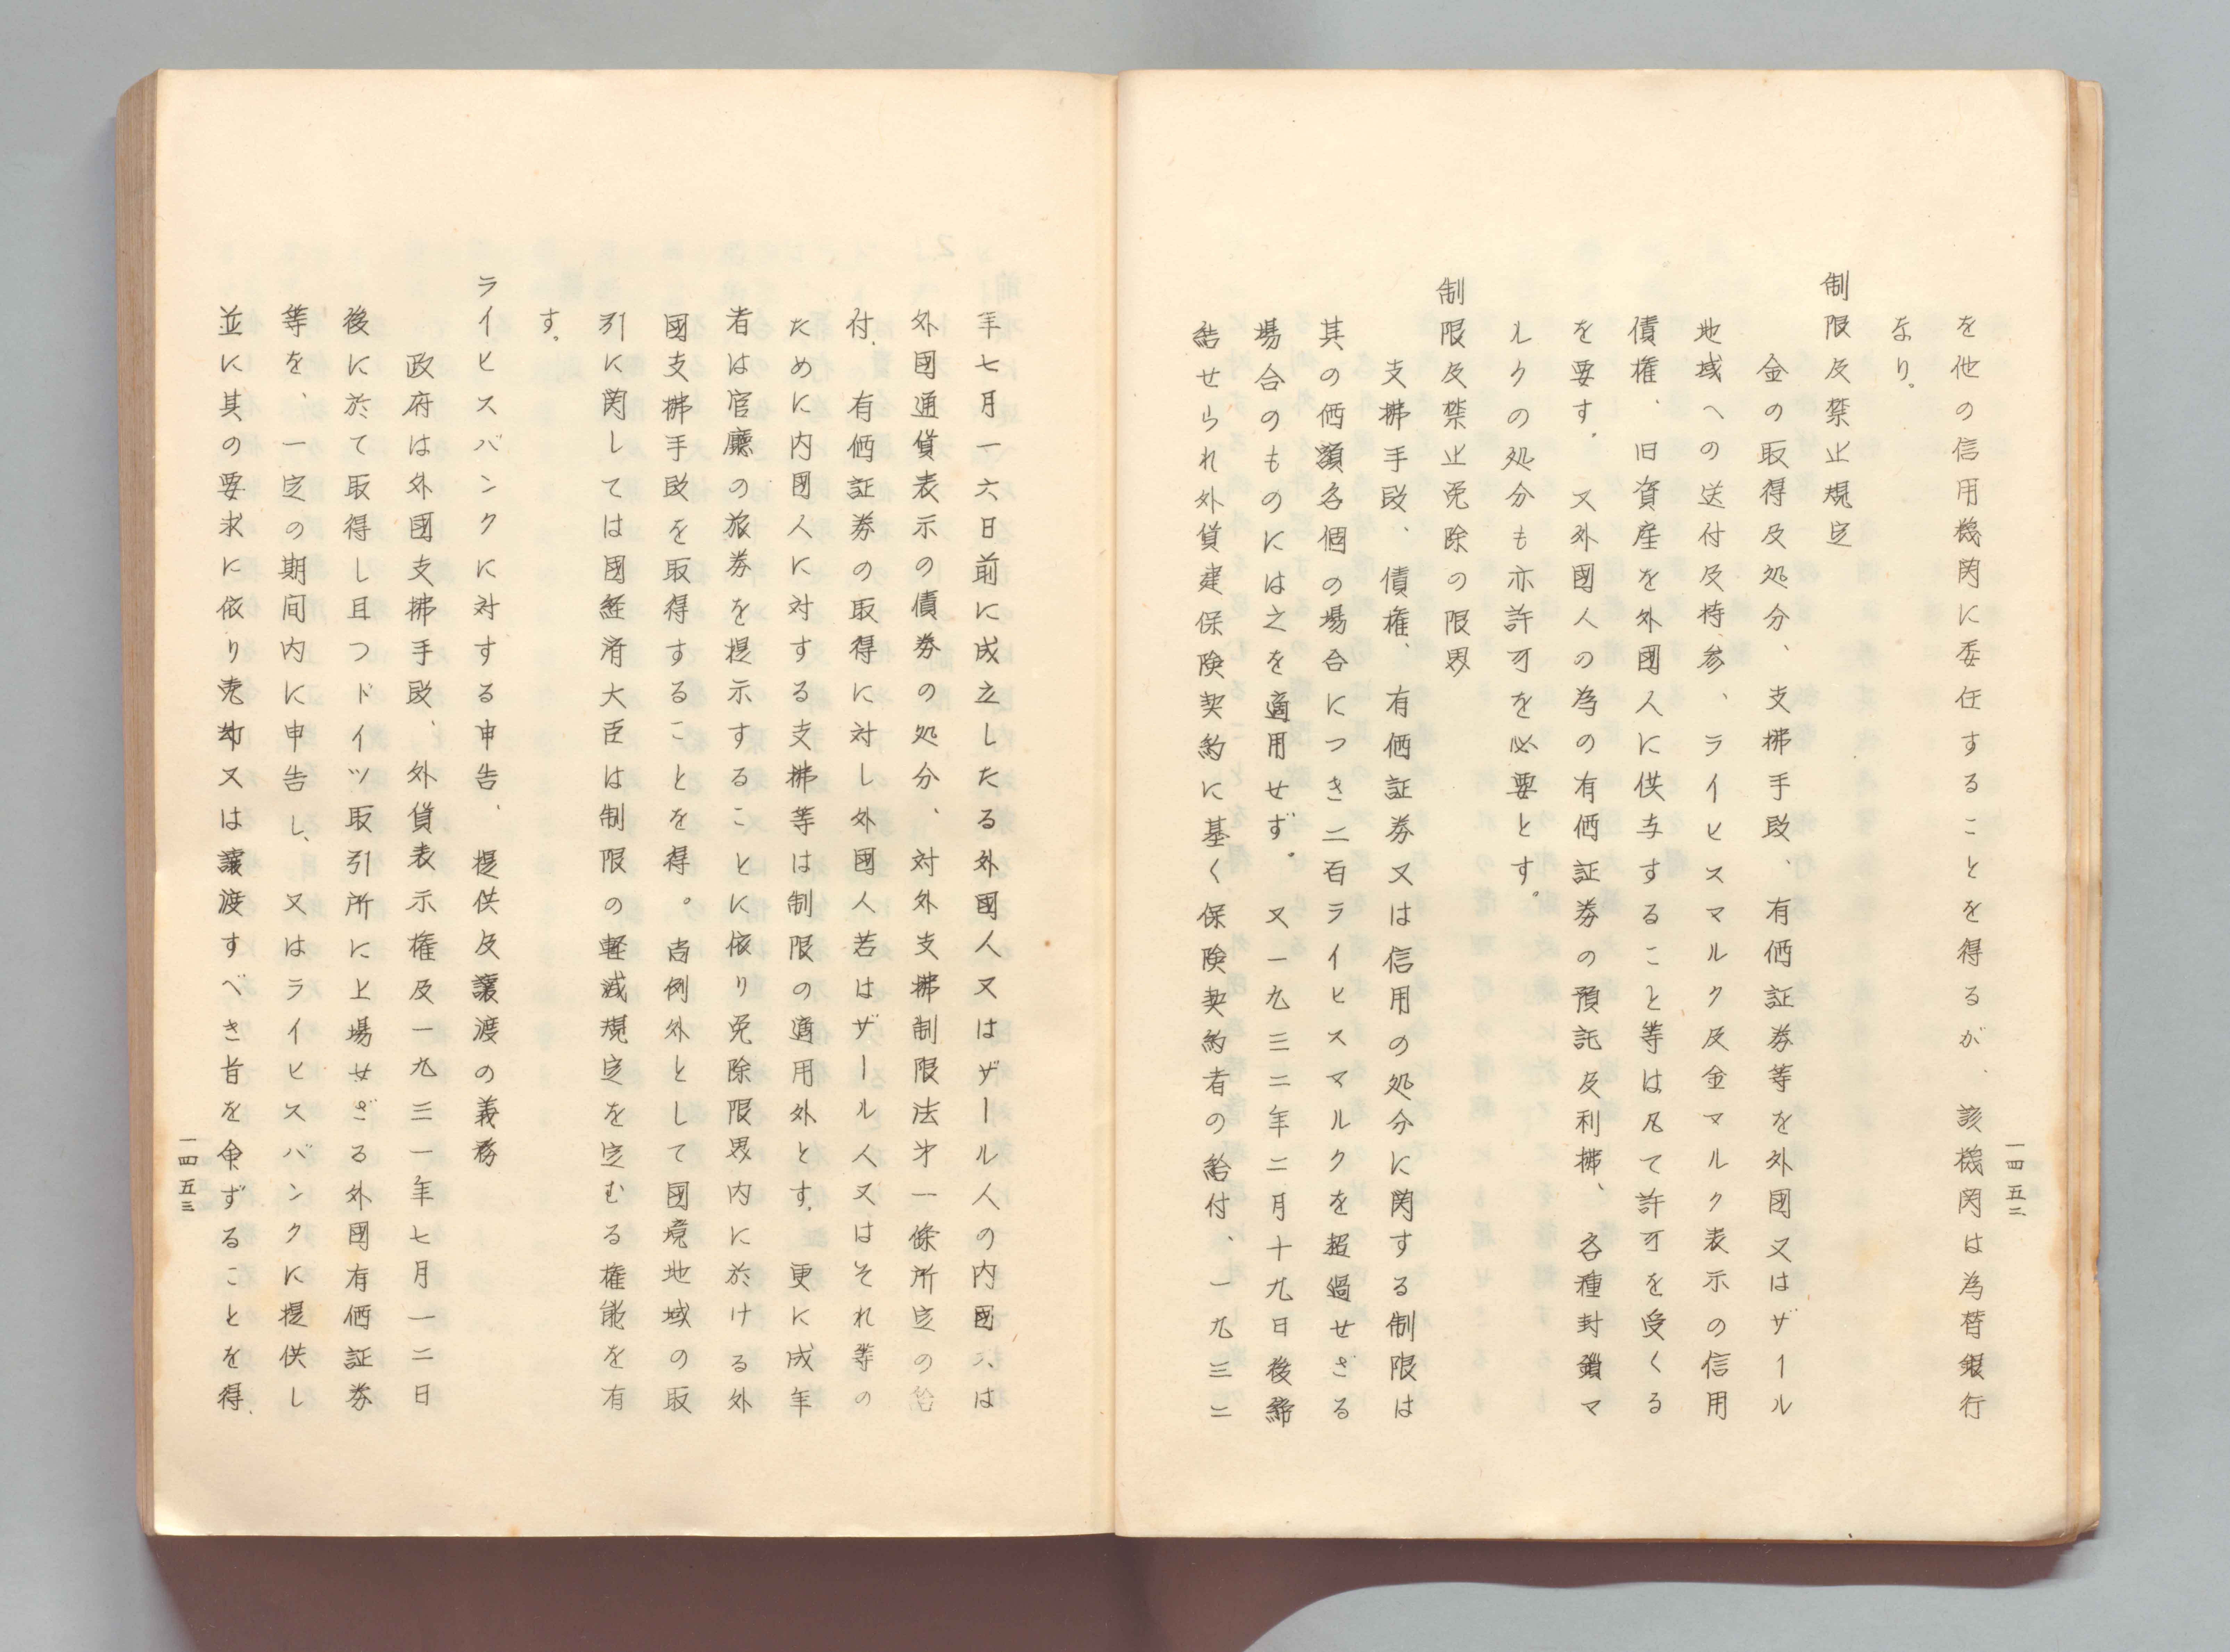 一四五二
を他の信用機関に委任することを得るが、該機関は為替銀行
なり。
制限及禁止規定
金の取得及処分、支拂手段、有価証券等を外國又はザール
地域への送付及持参、ライヒスマルク及金マルク表示の信用
債権、旧資産を外國人に供与すること等は凡て許可を受くる
を要す。又外國人の為の有価証券の預託及利拂、各種封鎖マ
ルクの処分も亦許可を必要とす。
制限及禁止免除の限界
支拂手段、債権、有価証券又は信用の処分に関する制限は
其の価額各個の場合につき二百ライヒスマルクを超過せざる
場合のものには之を適用せず。又一九三二年二月十九日後締
結せられ外貨建保険契約に基く保険契約者の給付、一九三二
年七月一六日前に成立したる外國人又はザール人の内國人は
外國通貨表示の債券の処分、対外支拂制限法才一條所定の給
付、有価証券の取得に対し外國人若はザール人又はそれ等の
ために内國人に対する支拂等は制限の適用外とす。更に成年
者は官廳の旅券を提示することに依り免除限界内に於ける外
國支拂手段を取得することを得。尚例外として國境地域の取
引に関しては國経済大臣は制限の軽減規定を定むる権能を有
す。
ライヒスバンクに対する申告、提供及譲渡の義務
政府は外國支拂手段、外貨表示権及一九三一年七月一二日
後に於て取得し且つドイツ取引所に上場せざる外國有価証券
等を、一定の期間内に申告し、又はライヒスバンクに提供し
並に其の要求に依り売却又は譲渡すべき旨を命ずることを得、
一四五三